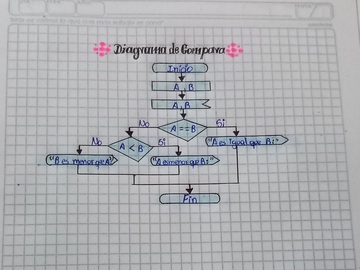 Diagrama de Compara
Inicio
A, B
A, B
No
Si
A == B
No
A < B
Si
"A es igual que B"
"B es menor que A"
"A es menor que B"
Fin